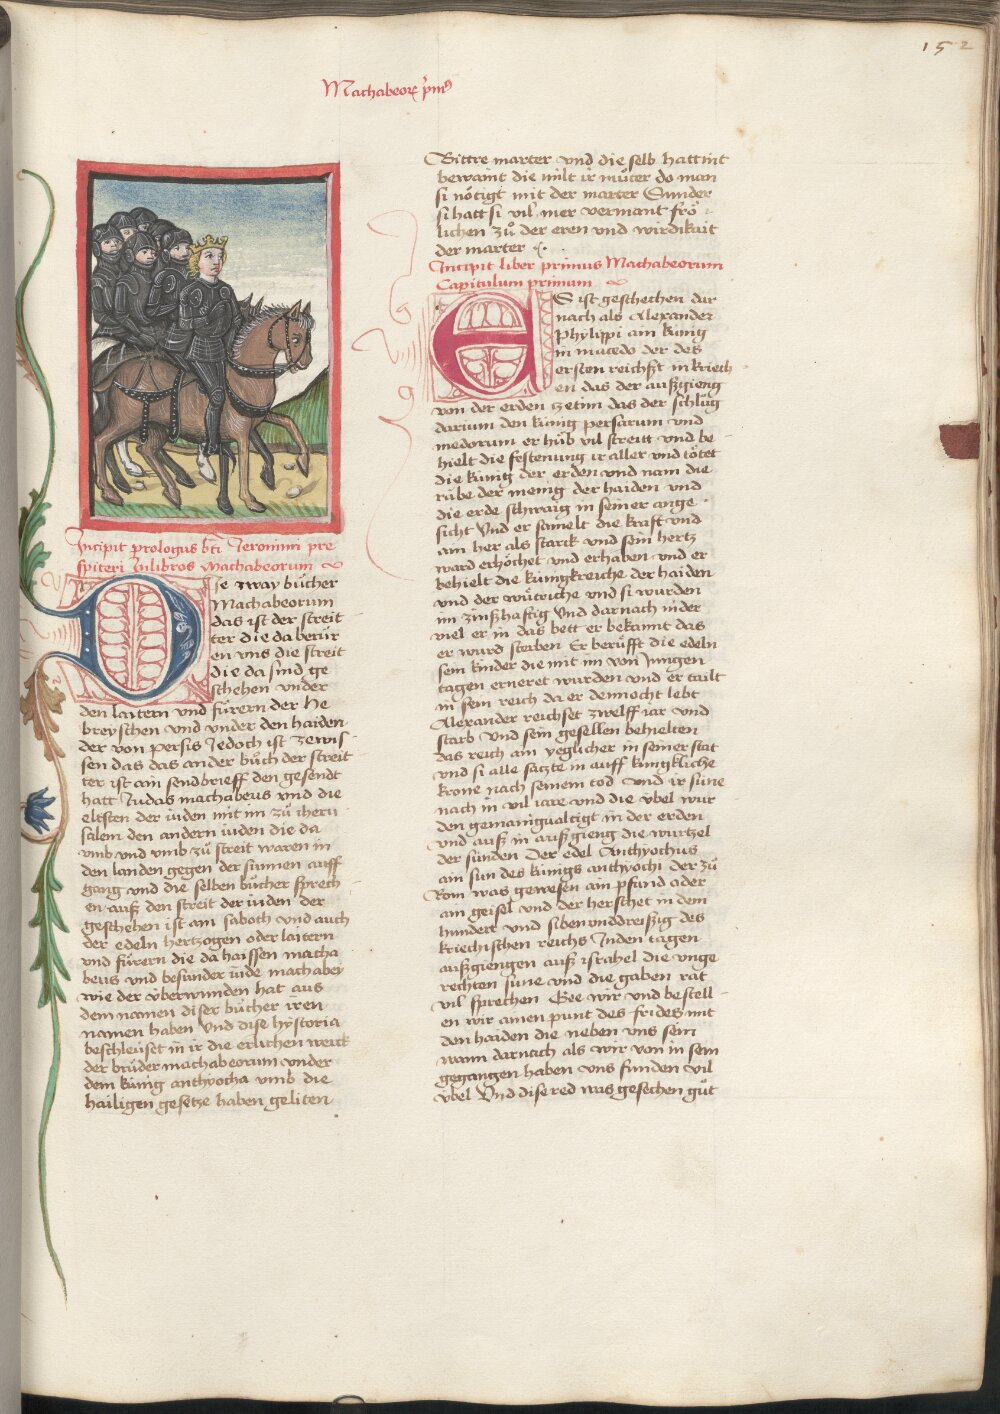 152
Machabeorꝝ p̓mꝰ
Incipit prologus bt̄i Jeronimi pre
spiteri In libros Machabeorum
Die zway bůcher
Machabeorum
das ist der streit
ter die da berür
en vns die streit
die da sind ge
schehen vnder
den laitern vnd fürern der He
breyschen vnd vnder den haiden
der von persis Jedoch ist zewis
sen das das ander bůch der streit
ter ist ain sendbrieff den gesendt
hatt Judas machabeus vnd die
eltsten der iuden mit im zů iheru
salem den andern iuden die da
vmb vnd vmb zů streit waren in
den landen gegen der sunnen auff
gang vnd die selben bůcher sprech
en auß den streit der iuden der
geschehen ist am saboth vnd auch
der edeln hertzogen oder laitern
vnd fürern die da haissen macha
beus vnd besunder iude machabej
wie der v̈berwunden hat aus
dem namen diser bücher iren
namen haben Vnd dise hẏstoria
beschleüset in ir die erlichen werck
der brüder machabeorum vnder
dem künig anthyocha vmb die
hailigen gesetze haben geliten
Bittre marter vnd die selb hatt nit
bewaint die milt ir můter do man
si nötigt mit der marter Sunder
si hatt si vil mer vermant frö
lichen zů der eren vnd wirdikait
der marter
Incipit liber primus Machabeorum
Capitulum primum
ES ist geschechen dar
nach als Alexander
Phylippi ain künig
in macedo der des
ersten reichßt in kriech
en das der außgieng
von der erden zetim das der schlůg
darium den künig persarum vnd
medorum er hůb vil streitt vnd be
hielt die festenung ir aller vnd tötet
die künig der erden vnd nam die
räbe der menig der haiden vnd
die erde schwaig in seiner ange
sicht Vnd er samelt die kraft vnd
ain her als starck vnd sein hertz
ward erhöchet vnd erhaben vnd er
behielt die küngkreiche der haiden
vnd der wütriche vnd si wurden
im zinßhafftig Vnd darnach in der
viel er in das bett er bekannt das
er wurd sterben Er berüfft die edeln
sein kinder die mit im von Jungen
tagen erneret wurden vnd er tailt
in sein reich da er dennocht lebt
Alexander reichset zwelff iar vnd
starb Vnd sein gesellen behielten
das reich ain yeglicher in seiner stat
vnd si alle satzte in auff küngkliche
krone nach seinem tod Vnd ir süne
nach in vil iare vnd die v̈bel wur
den gemanigualtigt in der erden
Vnd auß in auß gieng die wurtzel
der sünden Der edel Anthyochus
ain sun des künigs anthyochi der zů
Rom was gewesen ain pfand oder
ain geisel vnd der herschet in dem
hundert vnd sibenvnddreißig des
kriechischen reichs In den tagen
außgiengen auß israhel die vnge
rechten süne vnd die gaben rat
vil sprechen Gee wir vnd bestell
en wir ainen punt des frides mit
den haiden die neben vns sein
wann darnach als wir von in sein
gegangen haben vns funden vil
v̈bel Vnd dise red was gesechen gůt